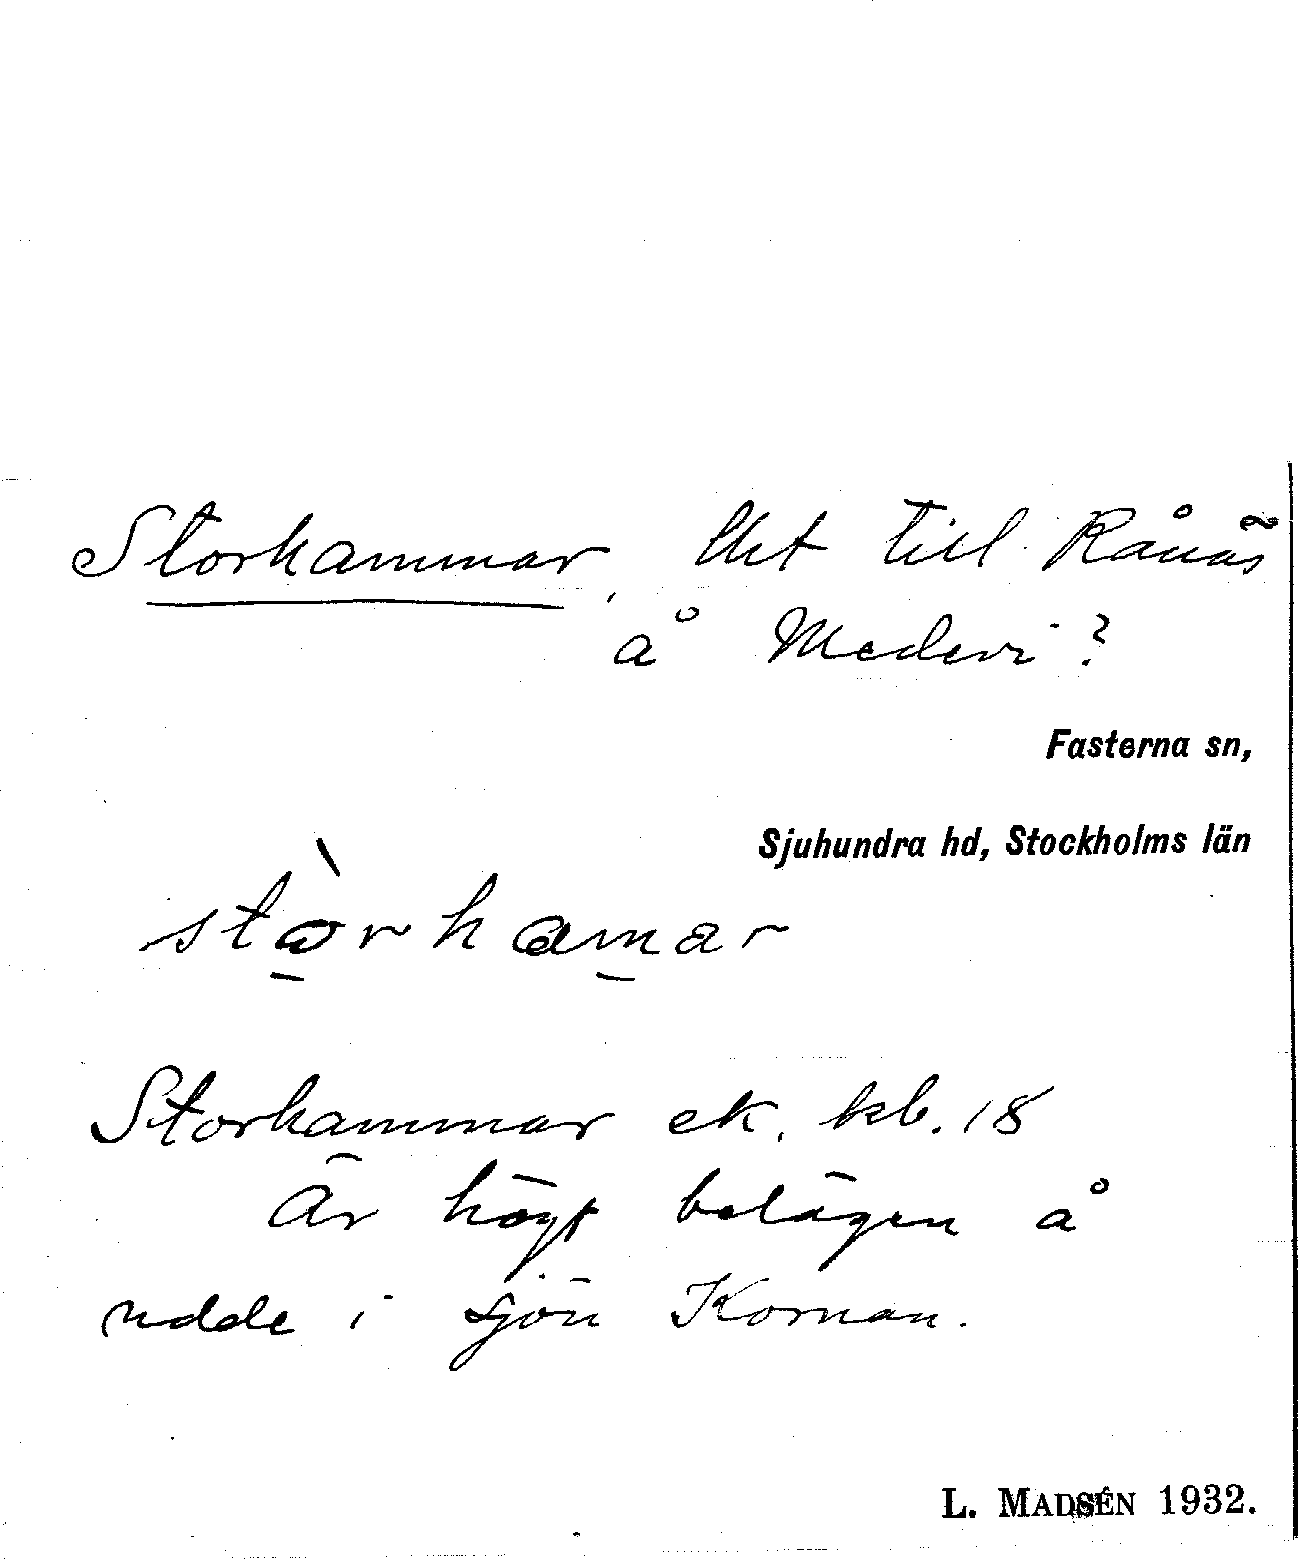 Storhammar, lht till Rånäs
å Medevi?
Fasterna sn,
Sjuhundra hd, Stockholms län
stòrhamar
Storhammar ek. kb. 18
Är högt belägen å
udde i sjön Kornan.
L. MADSÉN 1932.